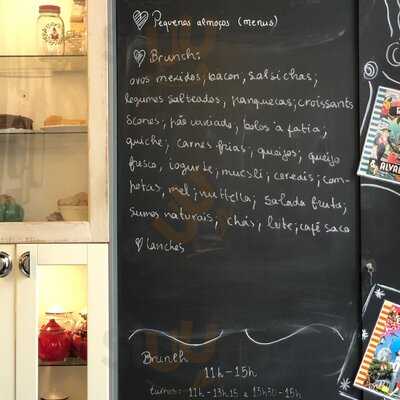 Pequenos almoços (menus)
Brunch:
ovos mexidos; bacon, salsichas;
legumes salteados; panquecas; croissants
scones; pão variado; bolos à fatia;
quiche; carnes frias; queijos; queijo
fresco, iogurte; muesli; cereais; com-
potas, mel; nuttella; salada fruta;
sumos naturais, chás, leite; café saco
lanches
Brunch
11h-15h
turnos: 11h-13h15 e 13h30-15h